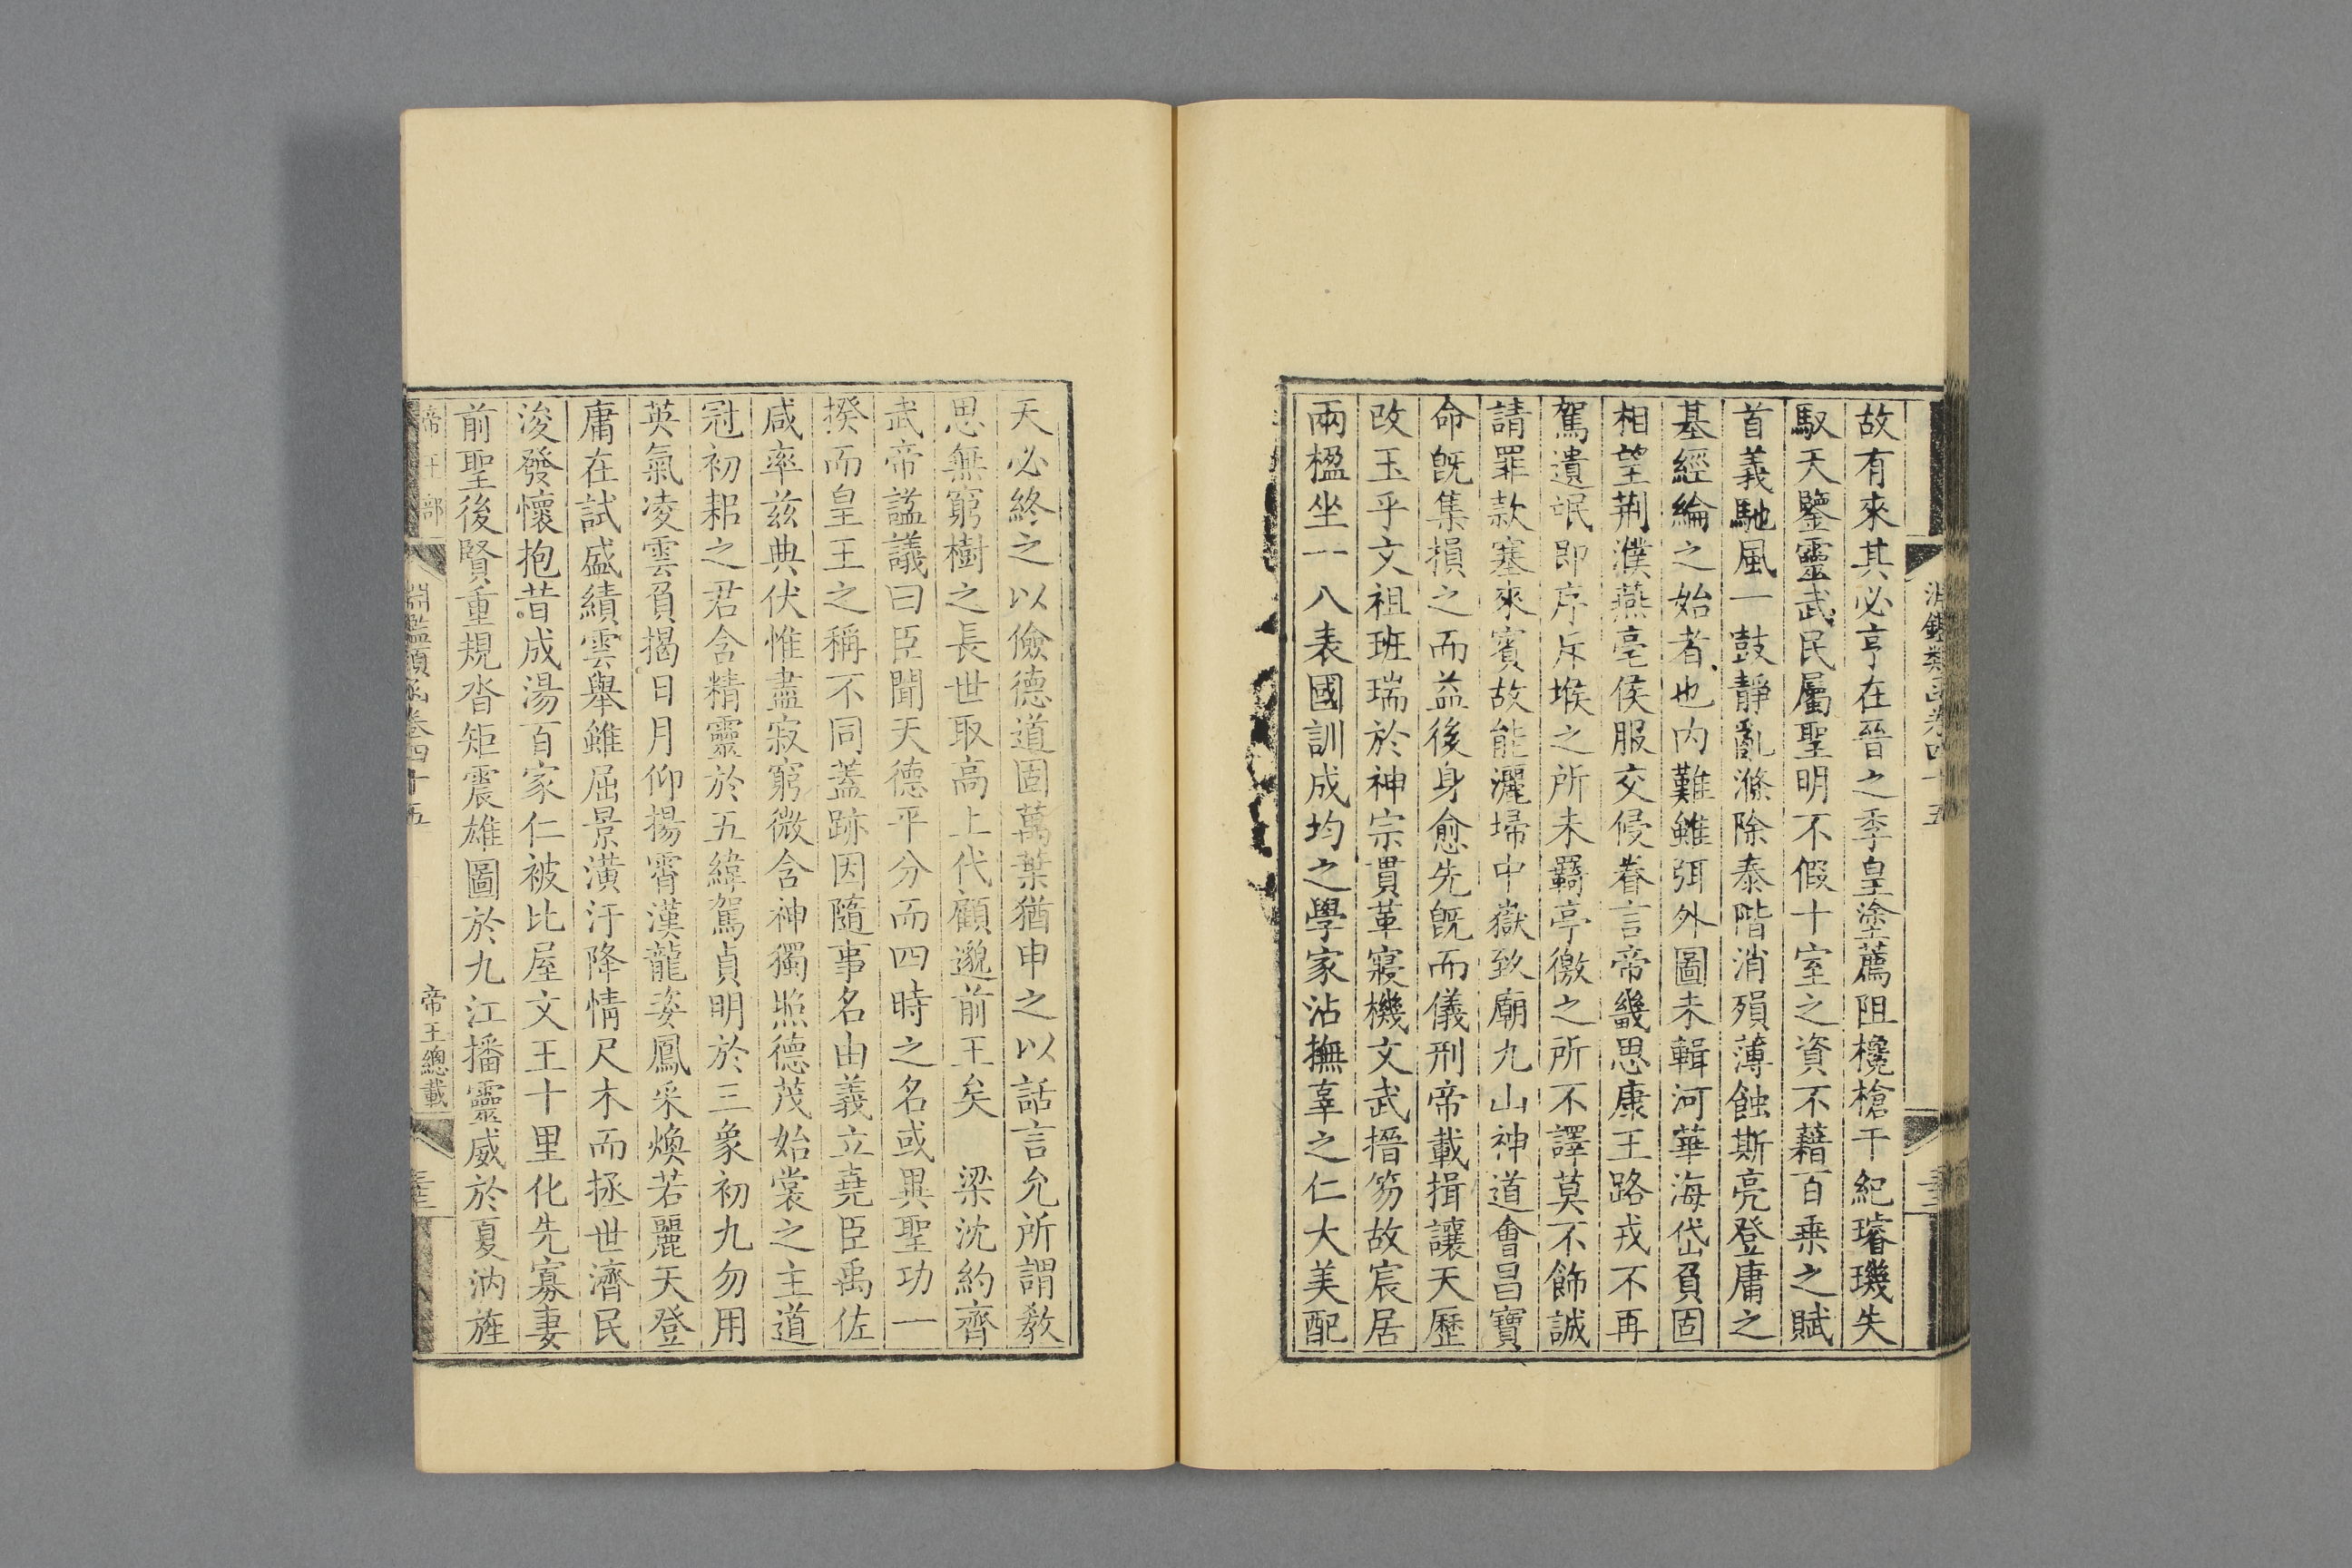 故有來其必亨在晉之季皇塗薦阻欃槍干紀璿璣失
馭天鑒靈武民屬聖明不假十室之資不藉百乗之賦
首義馳風一鼓靜亂滌除泰階消殞薄蝕斯亮登庸之
基經綸之始者也内難雖弭外圖未輯河華海岱負固
相望荆濮燕亳侯服交侵眷言帝畿思康王路戎不再
駕遺氓即序斥堠之所未羇亭徼之所不譯莫不飾誠
請罪款塞來賓故能灑埽中嶽致廟九山神道會昌寶
命旣集損之而益後身愈先旣而儀刑帝載揖讓天歷
改玉乎文祖班瑞於神宗貫革寢機文武搢笏故宸居
兩楹坐一八表國訓成均之學家沾撫辜之仁大美配
天必終之以儉德道固萬葉猶申之以話言允所謂敎
思無窮樹之長世取高上代顧邈前王矣 梁沈約齊
武帝謚議曰臣聞天德平分而四時之名或異聖功一
揆而皇王之稱不同蓋跡因隨事名由義立堯臣禹佐
咸率兹典伏惟盡寂窮微含神獨照德茂始裳之主道
冠初耜之君含精靈於五緯駕貞明於三象初九勿用
英氣凌雲負揭日月仰揚霄漢龍姿鳳采煥若麗天登
庸在試盛績雲舉雖屈景潢汙降情尺木而拯世濟民
浚發懷抱昔成湯百家仁被比屋文王十里化先寡妻
前聖後賢重規沓矩震雄圖於九江播靈威於夏汭旌
淵鑑類函卷四十五
帝王總載